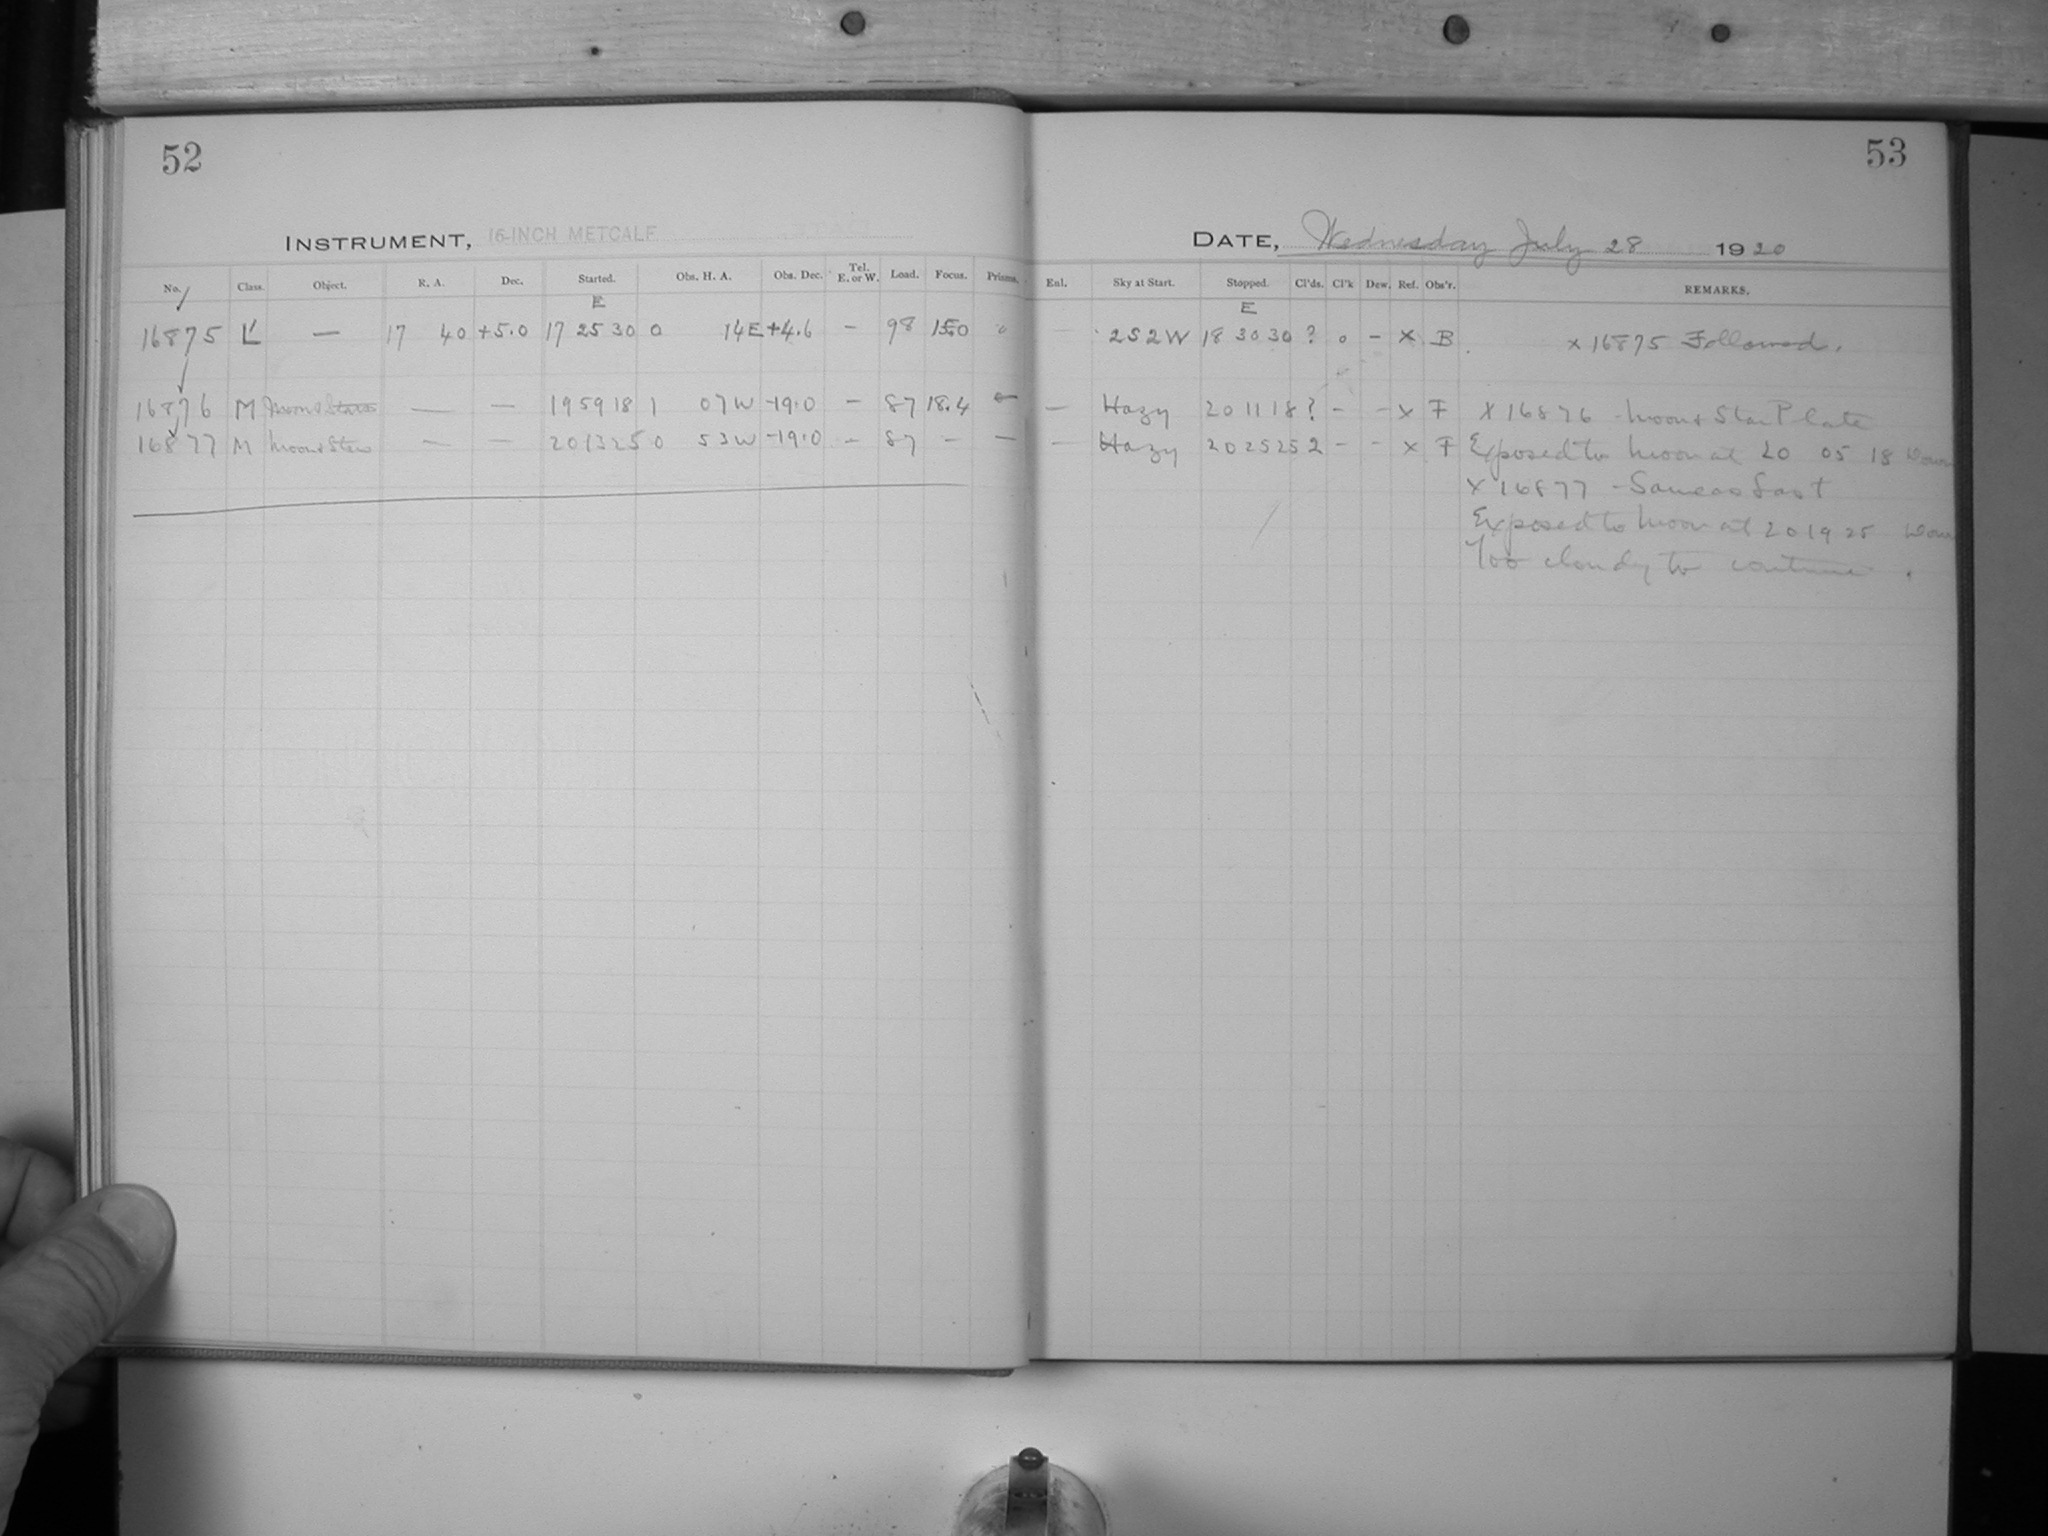 52
53
INSTRUMENT, 16-INCH METCALF
DATE, Wednesday July 28 1920
No. Class. Object. R. A. Dec. Started. Obs. H. A. Obs. Dec. Tel. E. or W. Load. Focus. Prisms. Enl. Sky at Start. Stopped. Cl'ds. Cl'k Dew. Ref. Obs'r. REMARKS.
E E
16875 L — 17 40 +5.0 17 25 30 0 14E +4.6 — 98 15.0 0 2S2W 18 30 30 ? 0 – x B x 16875 Followed.
16876 M Moon & Stars — — 19 59 18 1 07W -19.0 — 87 18.4 — — Hazy 20 11 18 ? – – x F X 16876 - Moon & Star Plate
16877 M Moon & Stars — — 20 13 25 0 53W -19.0 — 87 – — — Hazy 20 25 25 2 – – x F Exposed to Moon at 20 05 18
X 16877 - Same as last
Exposed to Moon at 20 19 25
Too cloudy to continue.